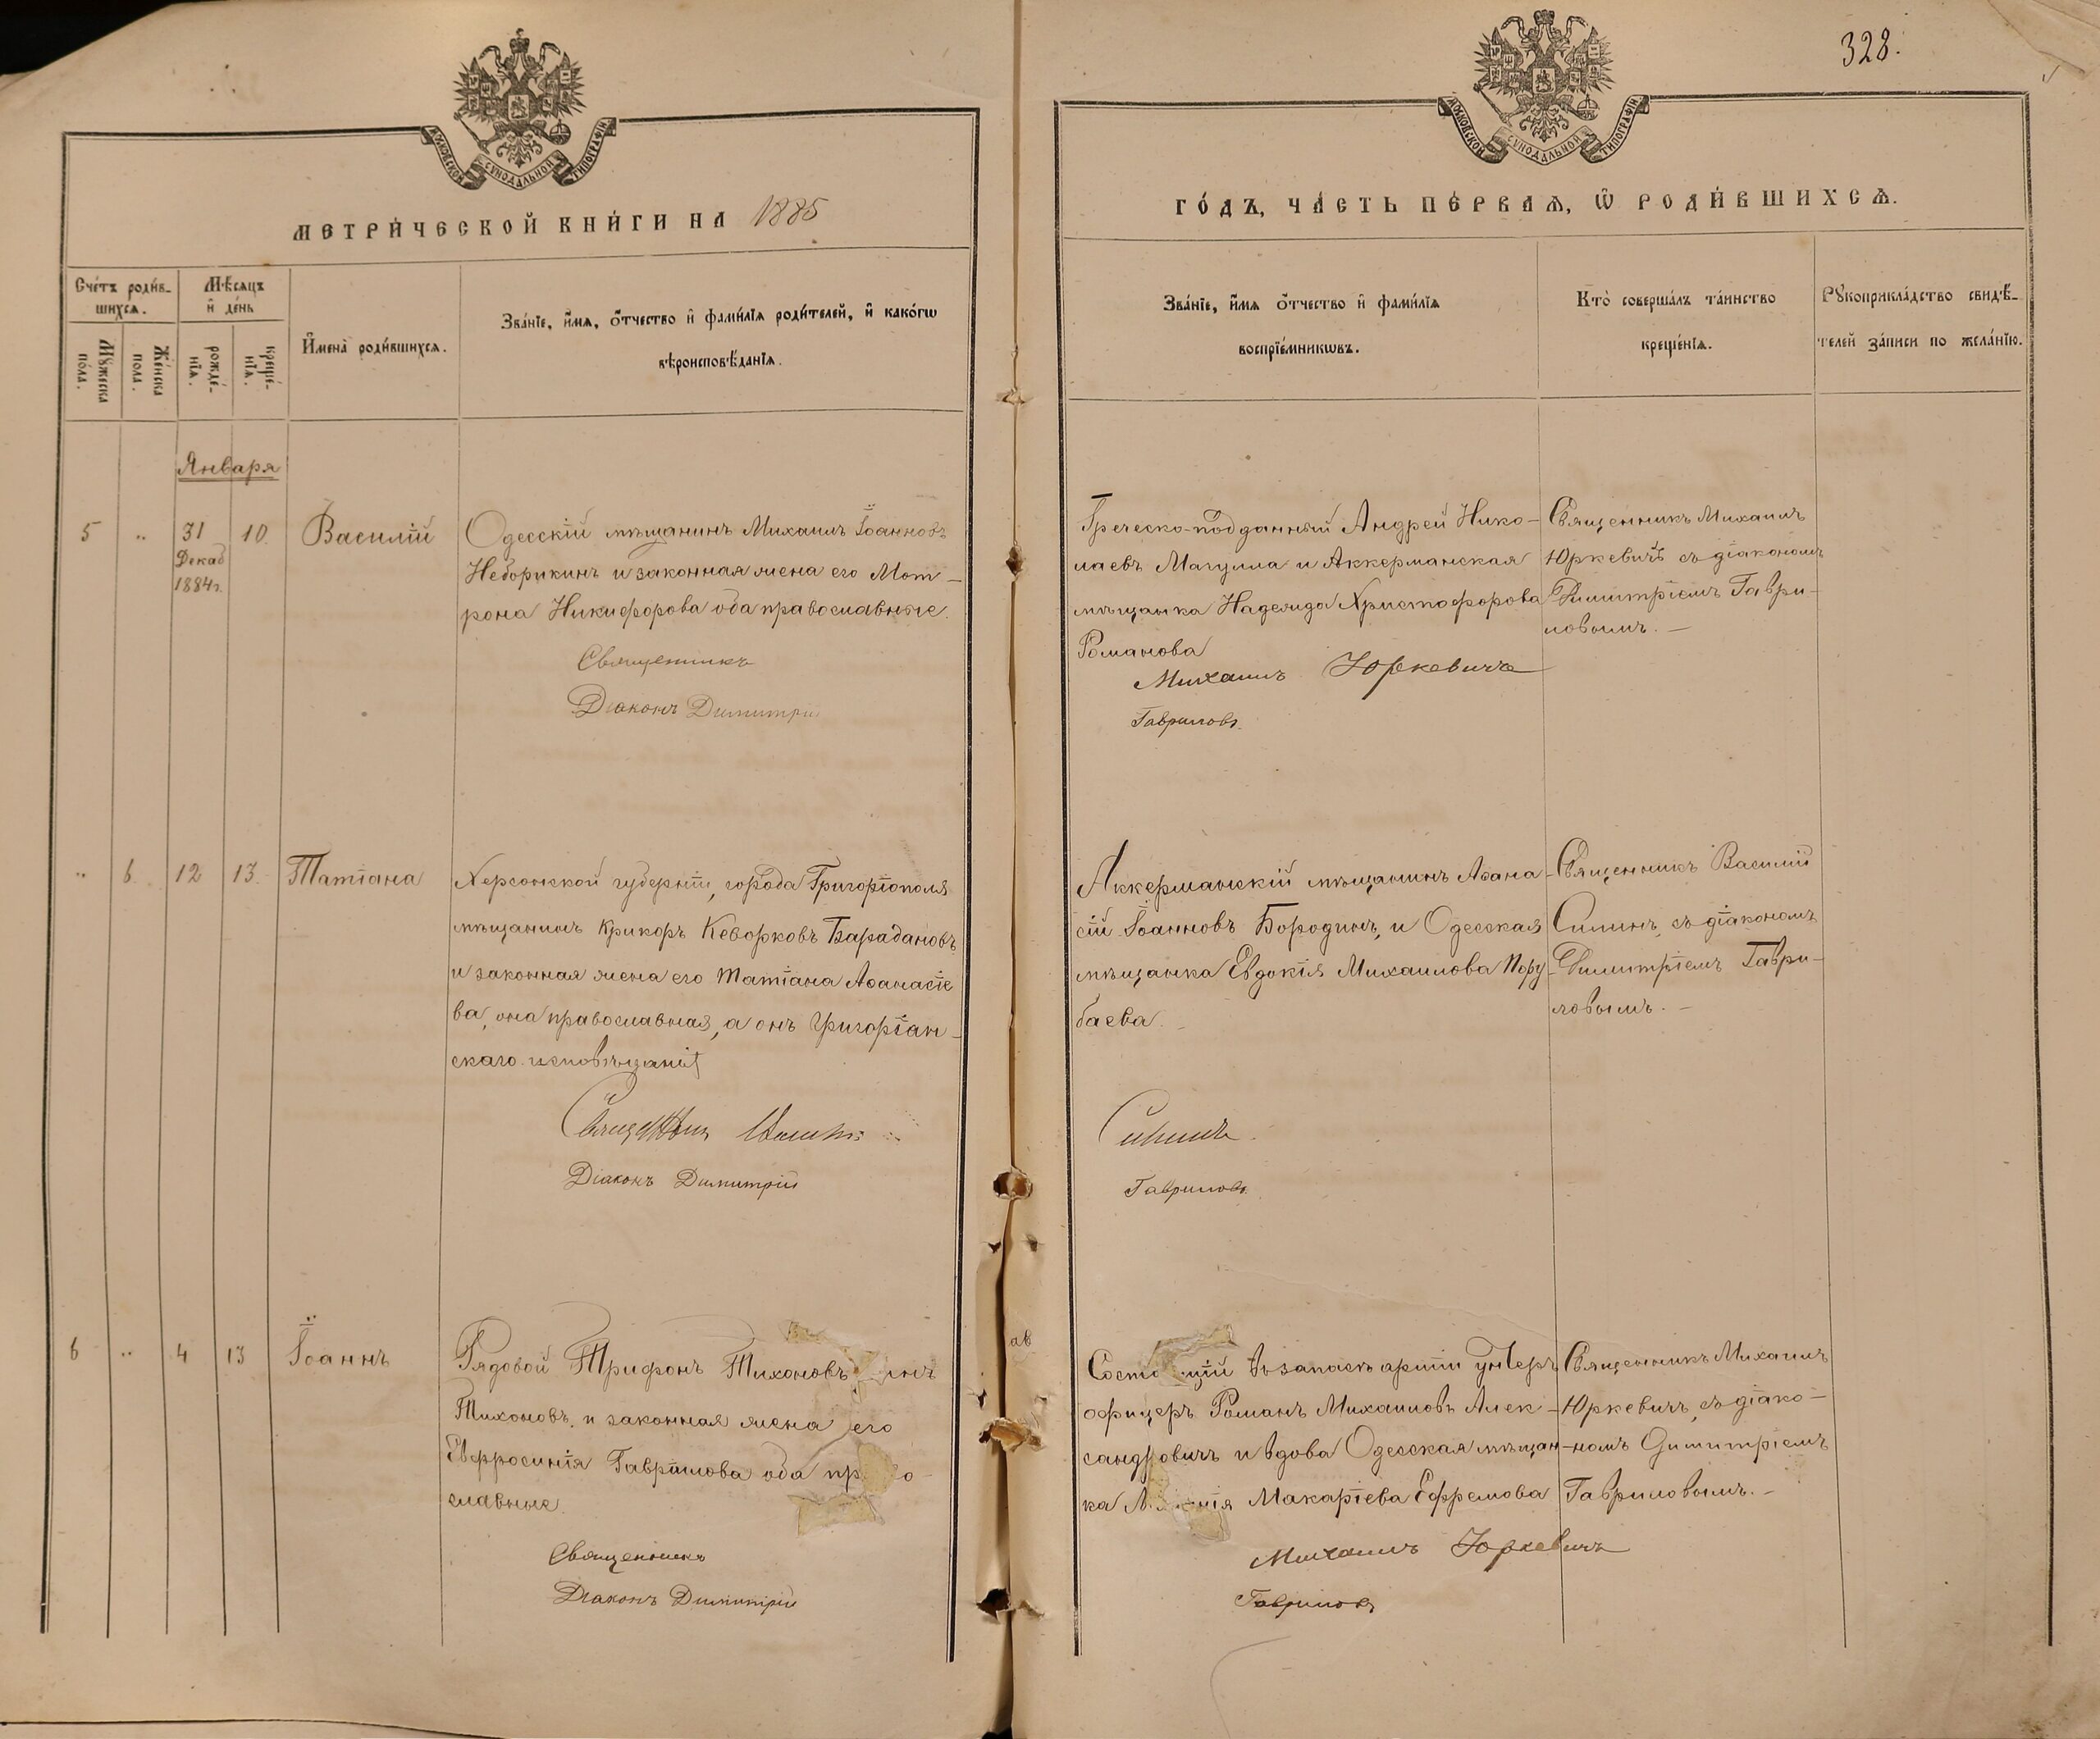 328.
МОСКОВСКОЙ СУНОДАЛЬНОЙ ТИПОГРАФІИ
МОСКОВСКОЙ СУНОДАЛЬНОЙ ТИПОГРАФІИ
МЕТРИ́ЧЕСКОЙ КНИ́ГИ НА 1885
ГО́ДЪ, ЧА́СТЬ ПЕ́РВАѦ, Ѡ РОДИ́ВШИХСѦ.
Сче́тъ роди́в-
шихсѧ.
Мꙋ́жеска по́ла.
Же́нска пола.
Мѣ́сѧцъ
и҆ де́нь
рожде́-
нїѧ.
креще́-
нїѧ.
И҆мена̀ роди́вшихсѧ.
Зва́нїе, и҆́мѧ, ѻ҆́тчество и҆ фами́лїѧ роди́телей, и҆ како́гѡ
вѣроисповѣ́данїѧ.
Зва́нїе, и҆́мѧ ѻ҆́тчество и҆ фами́лїѧ
воспрїе́мникѡвъ.
Кто̀ соверша́лъ та́инство
креще́нїѧ.
Рꙋкоприкла́дство свидѣ́-
телей за́писи по жела́нїю.
Января
5 " 31 10. Василій
Декаб
1884г.
Одесскій мѣщанинъ Михаилъ Іоанновъ
Неборикинъ и законная жена его Мот-
рона Никифорова оба православные.
Священникъ
Діаконъ Димитрій
Греческо-подданный Андрей Нико-
лаевъ Магулла и Аккерманская
мѣщанка Надежда Христофорова
Романова
Михаилъ Юркевичъ
Гавриловъ.
Священникъ Михаилъ
Юркевичъ съ діакономъ
Димитріемъ Гаври-
ловымъ. —
" 6. 12 13. Татіана
Херсонской губерніи, города Григоріополя
мѣщанинъ Крикоръ Кеворковъ Барадановъ
и законная жена его Татіана Аѳанасіе
ва, она православная, а онъ Григоріан-
скаго исповѣданія
Священникъ
Діаконъ Димитрій
Аккерманскій мѣщанинъ Аѳана-
сій Іоанновъ Бородинъ, и Одесская
мѣщанка Евдокія Михаилова Пору-
баева. -
Силинъ.
Гавриловъ.
Священникъ Василій
Силинъ, съ діакономъ
Димитріемъ Гаври-
ловымъ. —
6 " 4 13 Іоаннъ
Рядовой Трифонъ Тихоновъ
Тихоновъ. и законная жена его
Евфросинія Гаврилова оба право-
славные.
Священникъ
Діаконъ Димитрій
ав
Состоящій въ запасѣ арміи унтеръ
офицеръ Романъ Михаиловъ Алек-
сандровичъ и вдова Одесская мѣщан-
ка Макаріева Ефремова
Михаилъ Юркевичъ
Гавриловъ
Священникъ Михаилъ
Юркевичъ, съ діако-
номъ Димитріемъ
Гавриловымъ. -